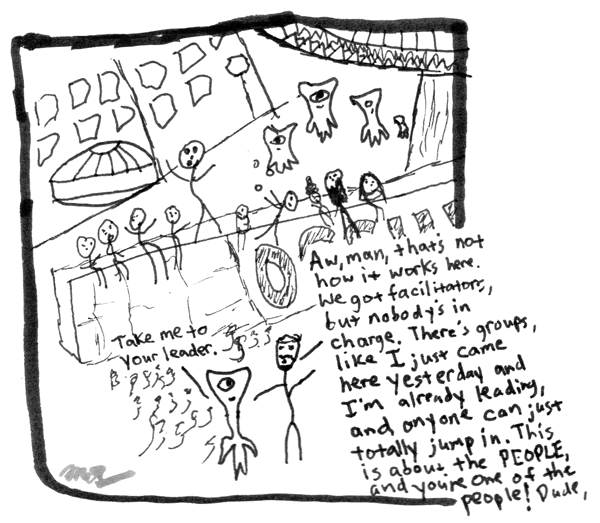 Take me to
your leader.
Aw, man, that's not
how it works here.
We got facilitators,
but nobody's in
charge. There's groups,
like I just came
here yesterday and
I'm already leading,
and anyone can just
totally jump in. This
is about the PEOPLE,
and you're one of the
people! Dude,